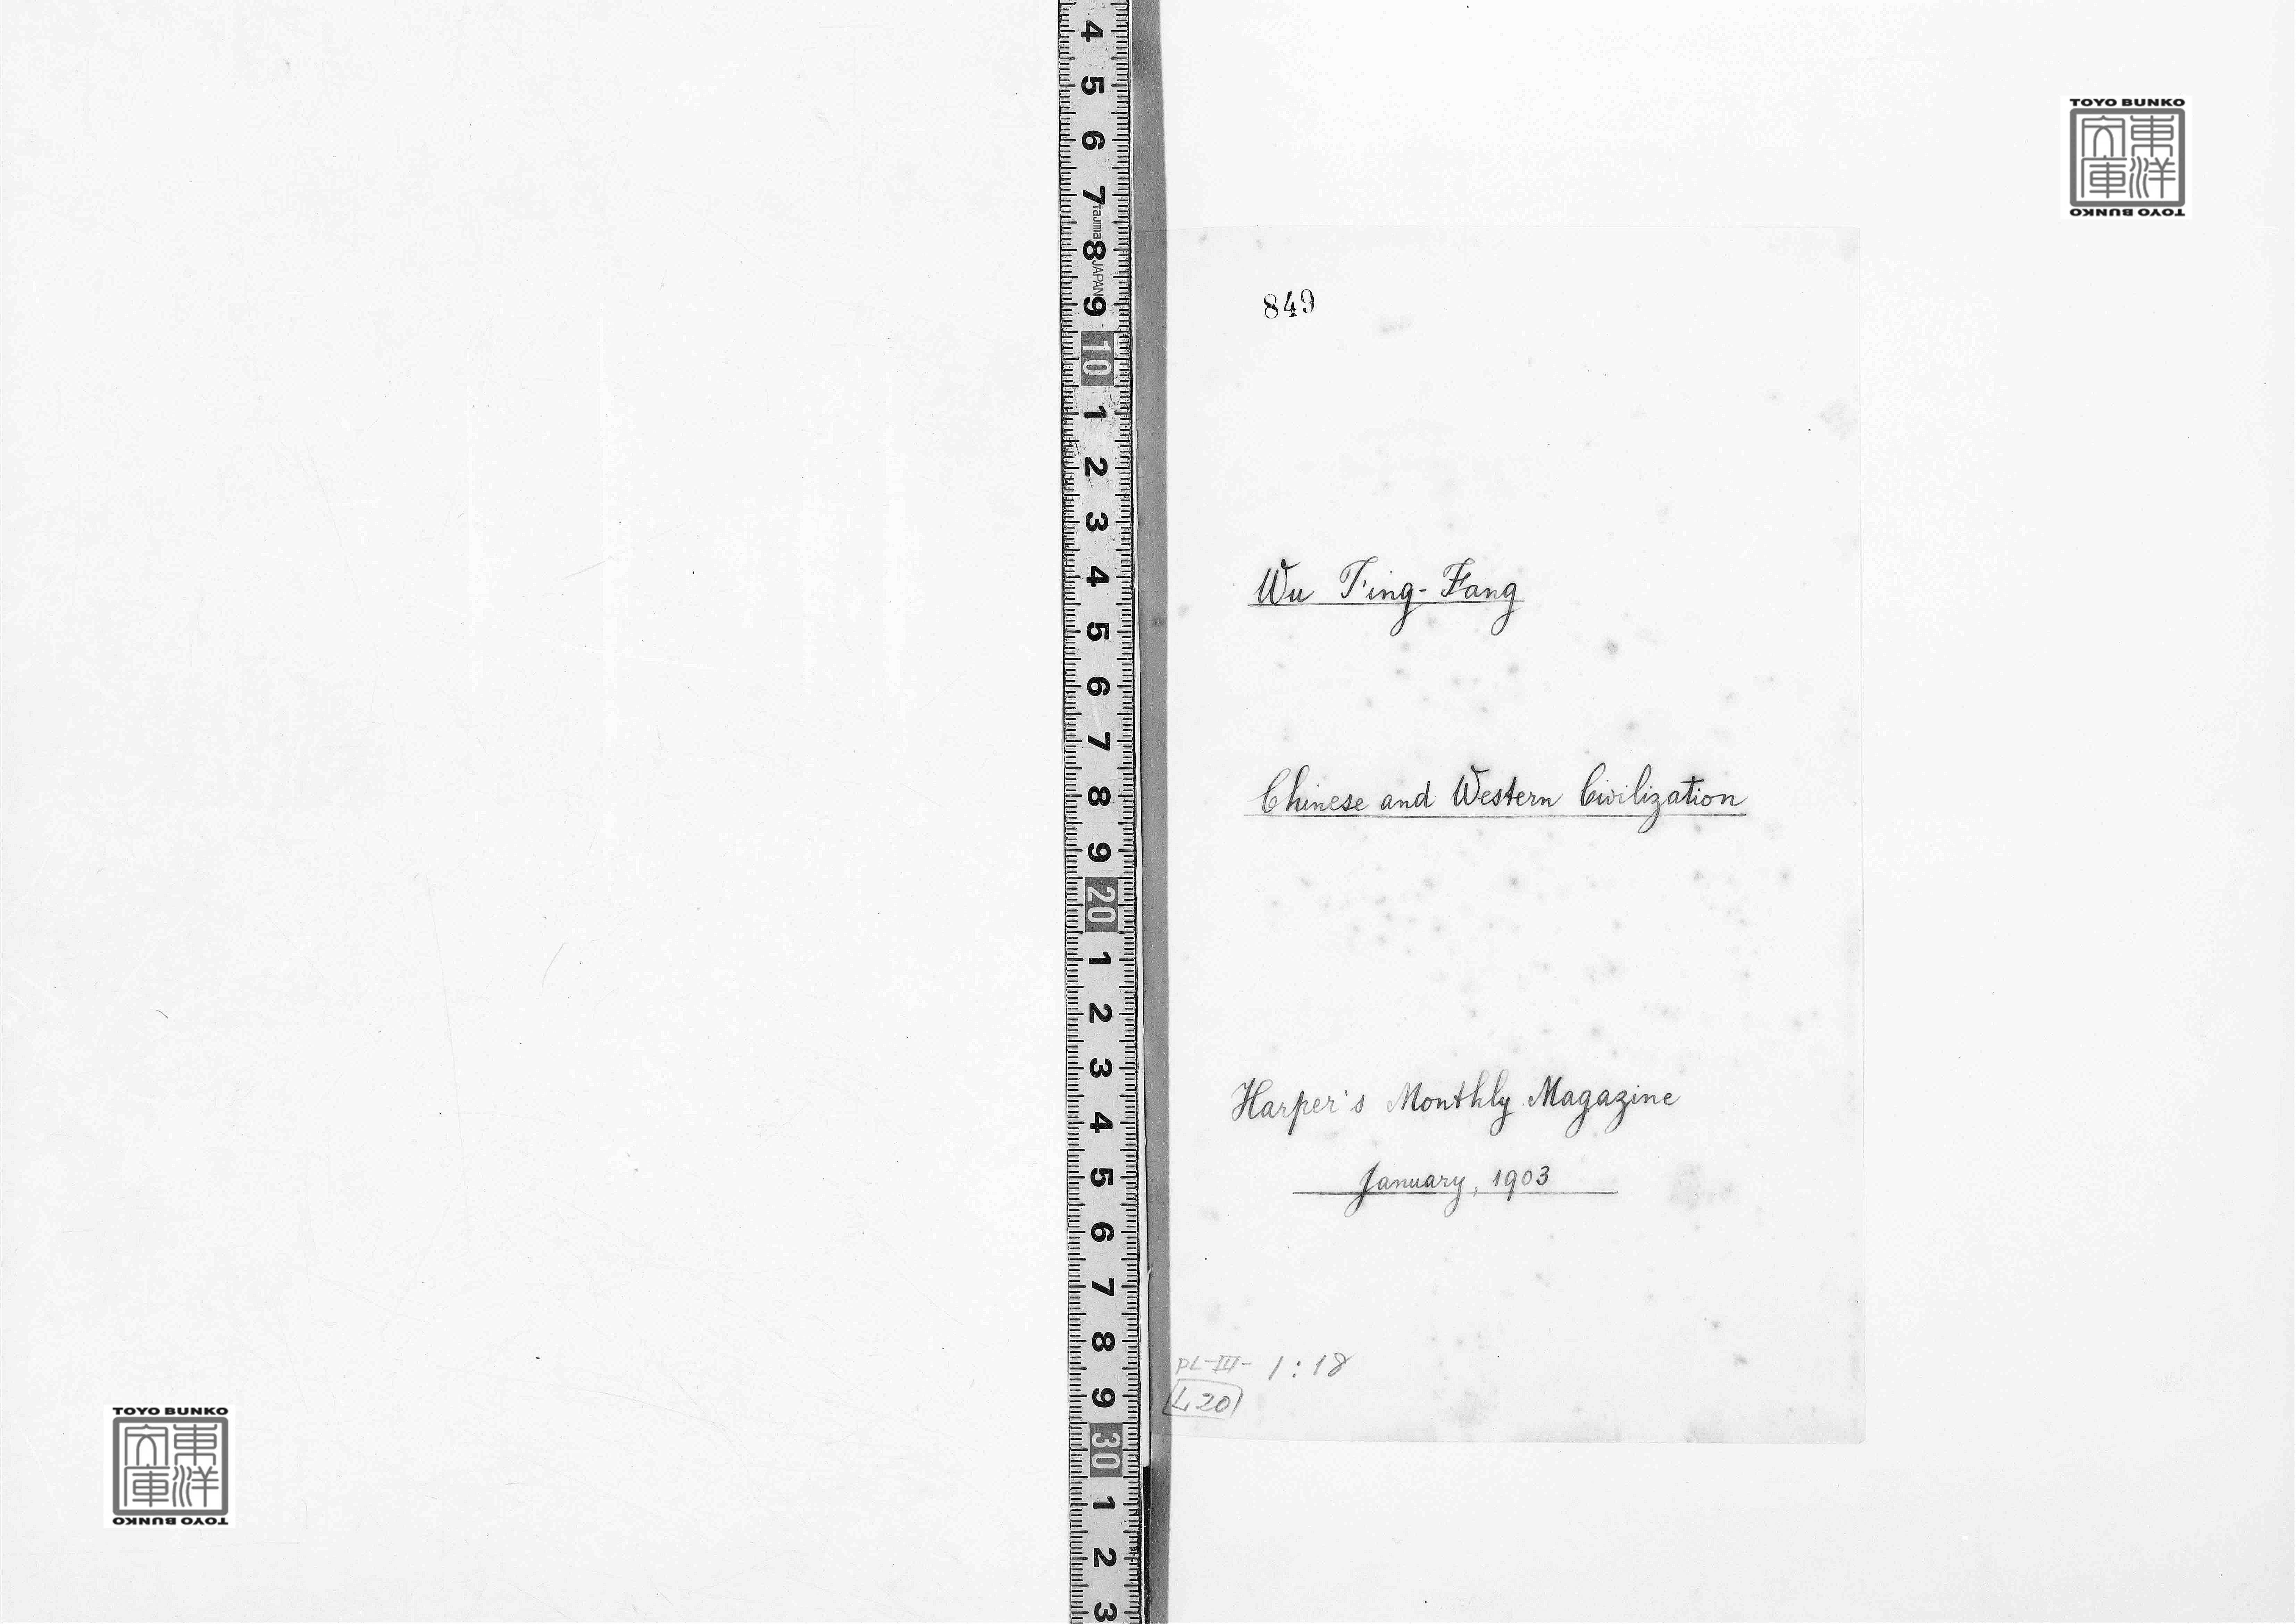 TOYO BUNKO
東洋文庫
TOYO BUNKO
849
Wu T'ing-Fang
Chinese and Western Civilization
Harper's Monthly Magazine
January, 1903
PL-III- 1:18
L20
4
5
6
7
Tajima
8
JAPAN
9
10
1
2
3
4
5
6
7
8
9
20
1
2
3
4
5
6
7
8
9
30
1
2
3
TOYO BUNKO
東洋文庫
TOYO BUNKO